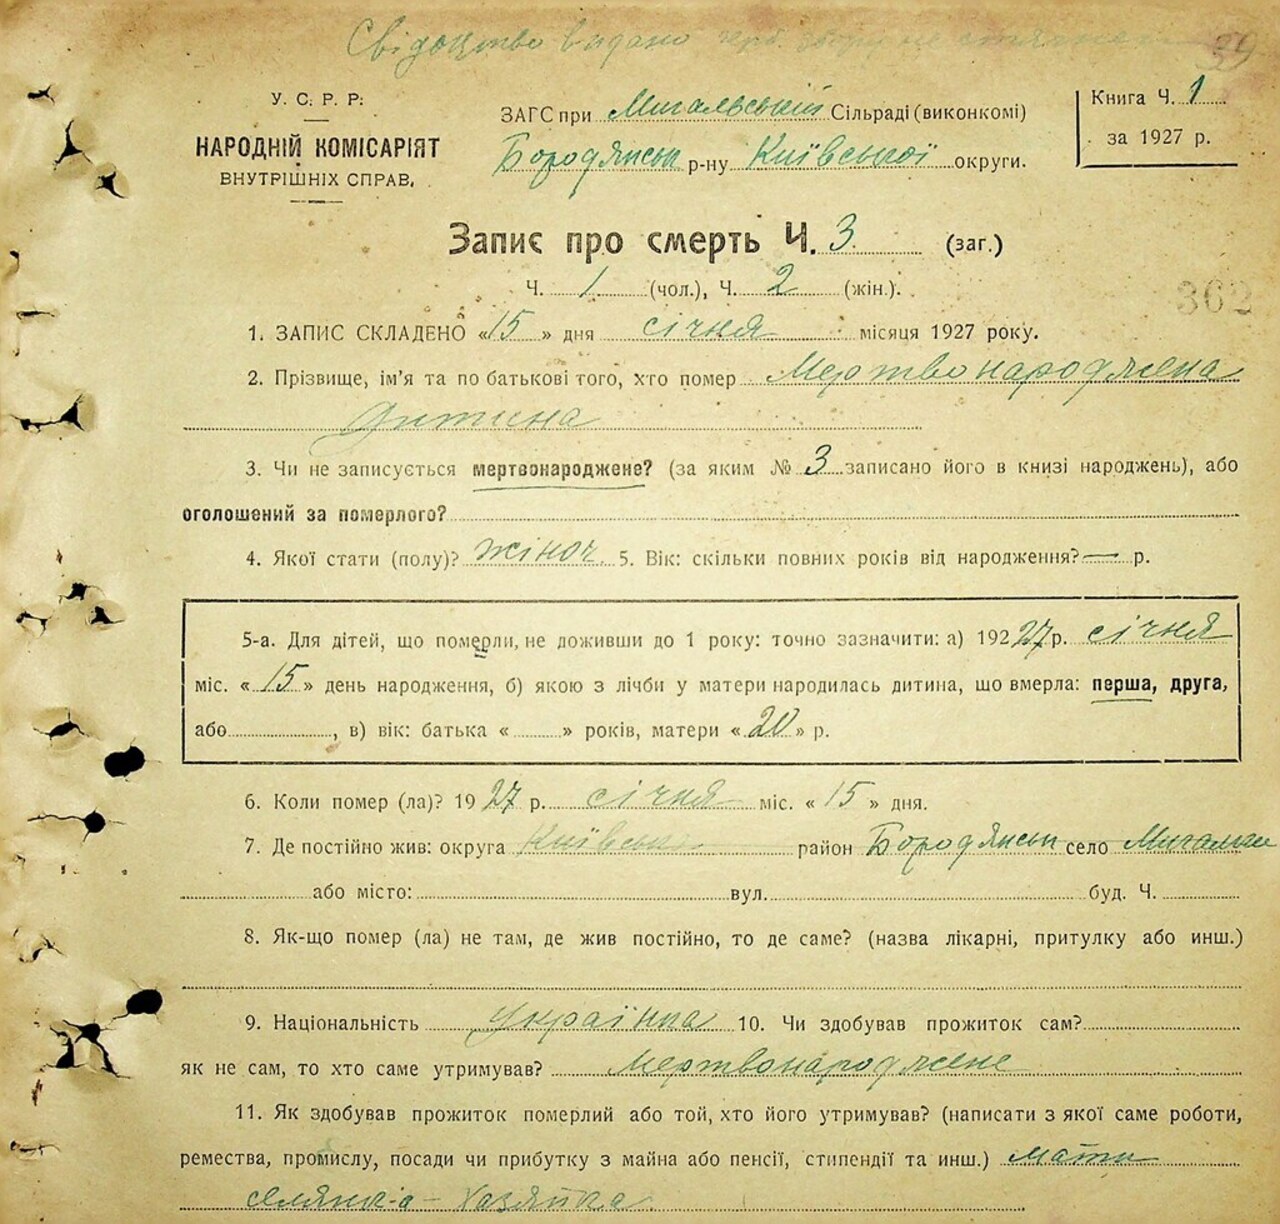 Свідоцтво видано
39
У. С. Р. Р.
НАРОДНІЙ КОМІСАРІЯТ
ВНУТРІШНІХ СПРАВ.
ЗАГС при Мигальській Сільраді (виконкомі)
Бородянськ р-ну Київської округи.
Книга Ч. 1
за 1927 р.
Запис про смерть Ч. 3 (заг.)
Ч. 1 (чол.), Ч. 2 (жін.).
362
1. ЗАПИС СКЛАДЕНО «15» дня січня місяця 1927 року.
2. Прізвище, ім'я та по батькові того, хто помер Мертвонароджена
дитина
3. Чи не записується мертвонароджене? (за яким № 3 записано його в книзі народжень), або
оголошений за померлого?
4. Якої стати (полу)? жіноч 5. Вік: скільки повних років від народження? — р.
5-а. Для дітей, що померли, не доживши до 1 року: точно зазначити: а) 19227 р. січня
міс. «15» день народження, б) якою з лічби у матери народилась дитина, що вмерла: перша, друга,
або , в) вік: батька « » років, матери «20» р.
6. Коли помер (ла)? 1927 р. січня міс. «15» дня.
7. Де постійно жив: округа Київськ район Бородянськ село Мигалки
або місто: вул. буд. Ч.
8. Як-що помер (ла) не там, де жив постійно, то де саме? (назва лікарні, притулку або инш.)
9. Національність українка 10. Чи здобував прожиток сам?
як не сам, то хто саме утримував? мертвонароджене
11. Як здобував прожиток померлий або той, хто його утримував? (написати з якої саме роботи,
ремества, промислу, посади чи прибутку з майна або пенсії, стипендії та инш.) мати
селянк-а – хазяйка